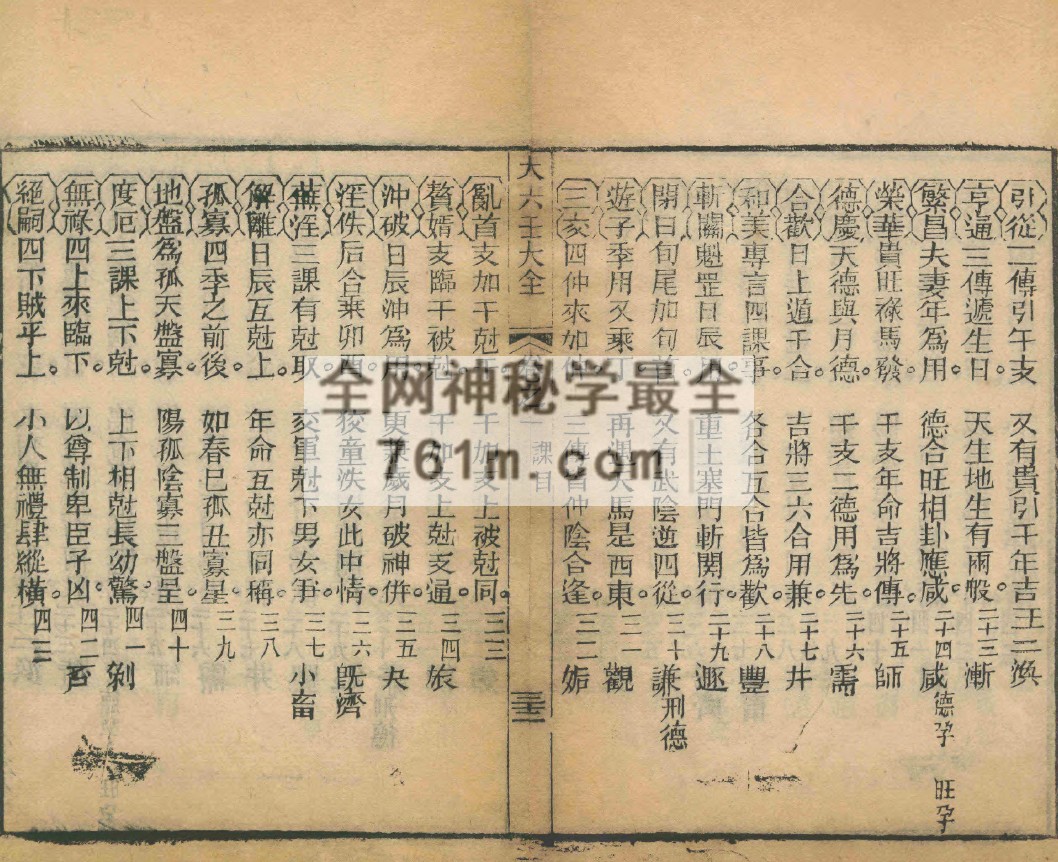 引從二傳引干支 又有貴引干年吉 王二渙
亨通三傳遞生日 天生地生有兩般 二十三漸
繁昌夫妻年為用 德合旺相卦應咸 二十四咸 德孕 旺孕
榮華貴旺祿馬發 干支年命吉將傳 二十五師
德慶天德與月德 干支二德用為先 二十六需
合歡日上遁干合 吉將三六合用兼 二十七井
和美專言四課事 各合五合皆為歡 二十八豐
斬關魁罡日辰 重土塞門斬関行 二十九遯
閉口旬尾加旬首 又有武陰逆四從 三十謙 刑德
遊子季用又乘丁 再遇天馬是西東 三一觀
三交四仲來加仲 三傳皆仲陰合逢 三二姤
大六壬大全 卷之 課目 三十二
亂首支加干尅干 干加支上被尅同 三三
贅婿支臨干被尅 干加支上尅支通 三四旅
沖破日辰沖為用 更兼歲月破神併 三五夬
淫泆后合乗卯酉 狡童泆女此中情 三六旣濟
蕪淫三課有尅取 交車尅下男女爭 三七小畜
解離日辰互尅上 年命互尅亦同稱 三八
孤寡四季之前後 如春巳孤丑寡星 三九
地盤為孤天盤寡 陽孤陰寡三盤呈 四十
度厄三課上下尅 上下相尅長幼驚 四一剝
無祿四上來臨下 以尊制卑臣子凶 四二否
絕嗣四下賊乎上 小人無禮肆縱橫 四三
全网神秘学最全
761m.com